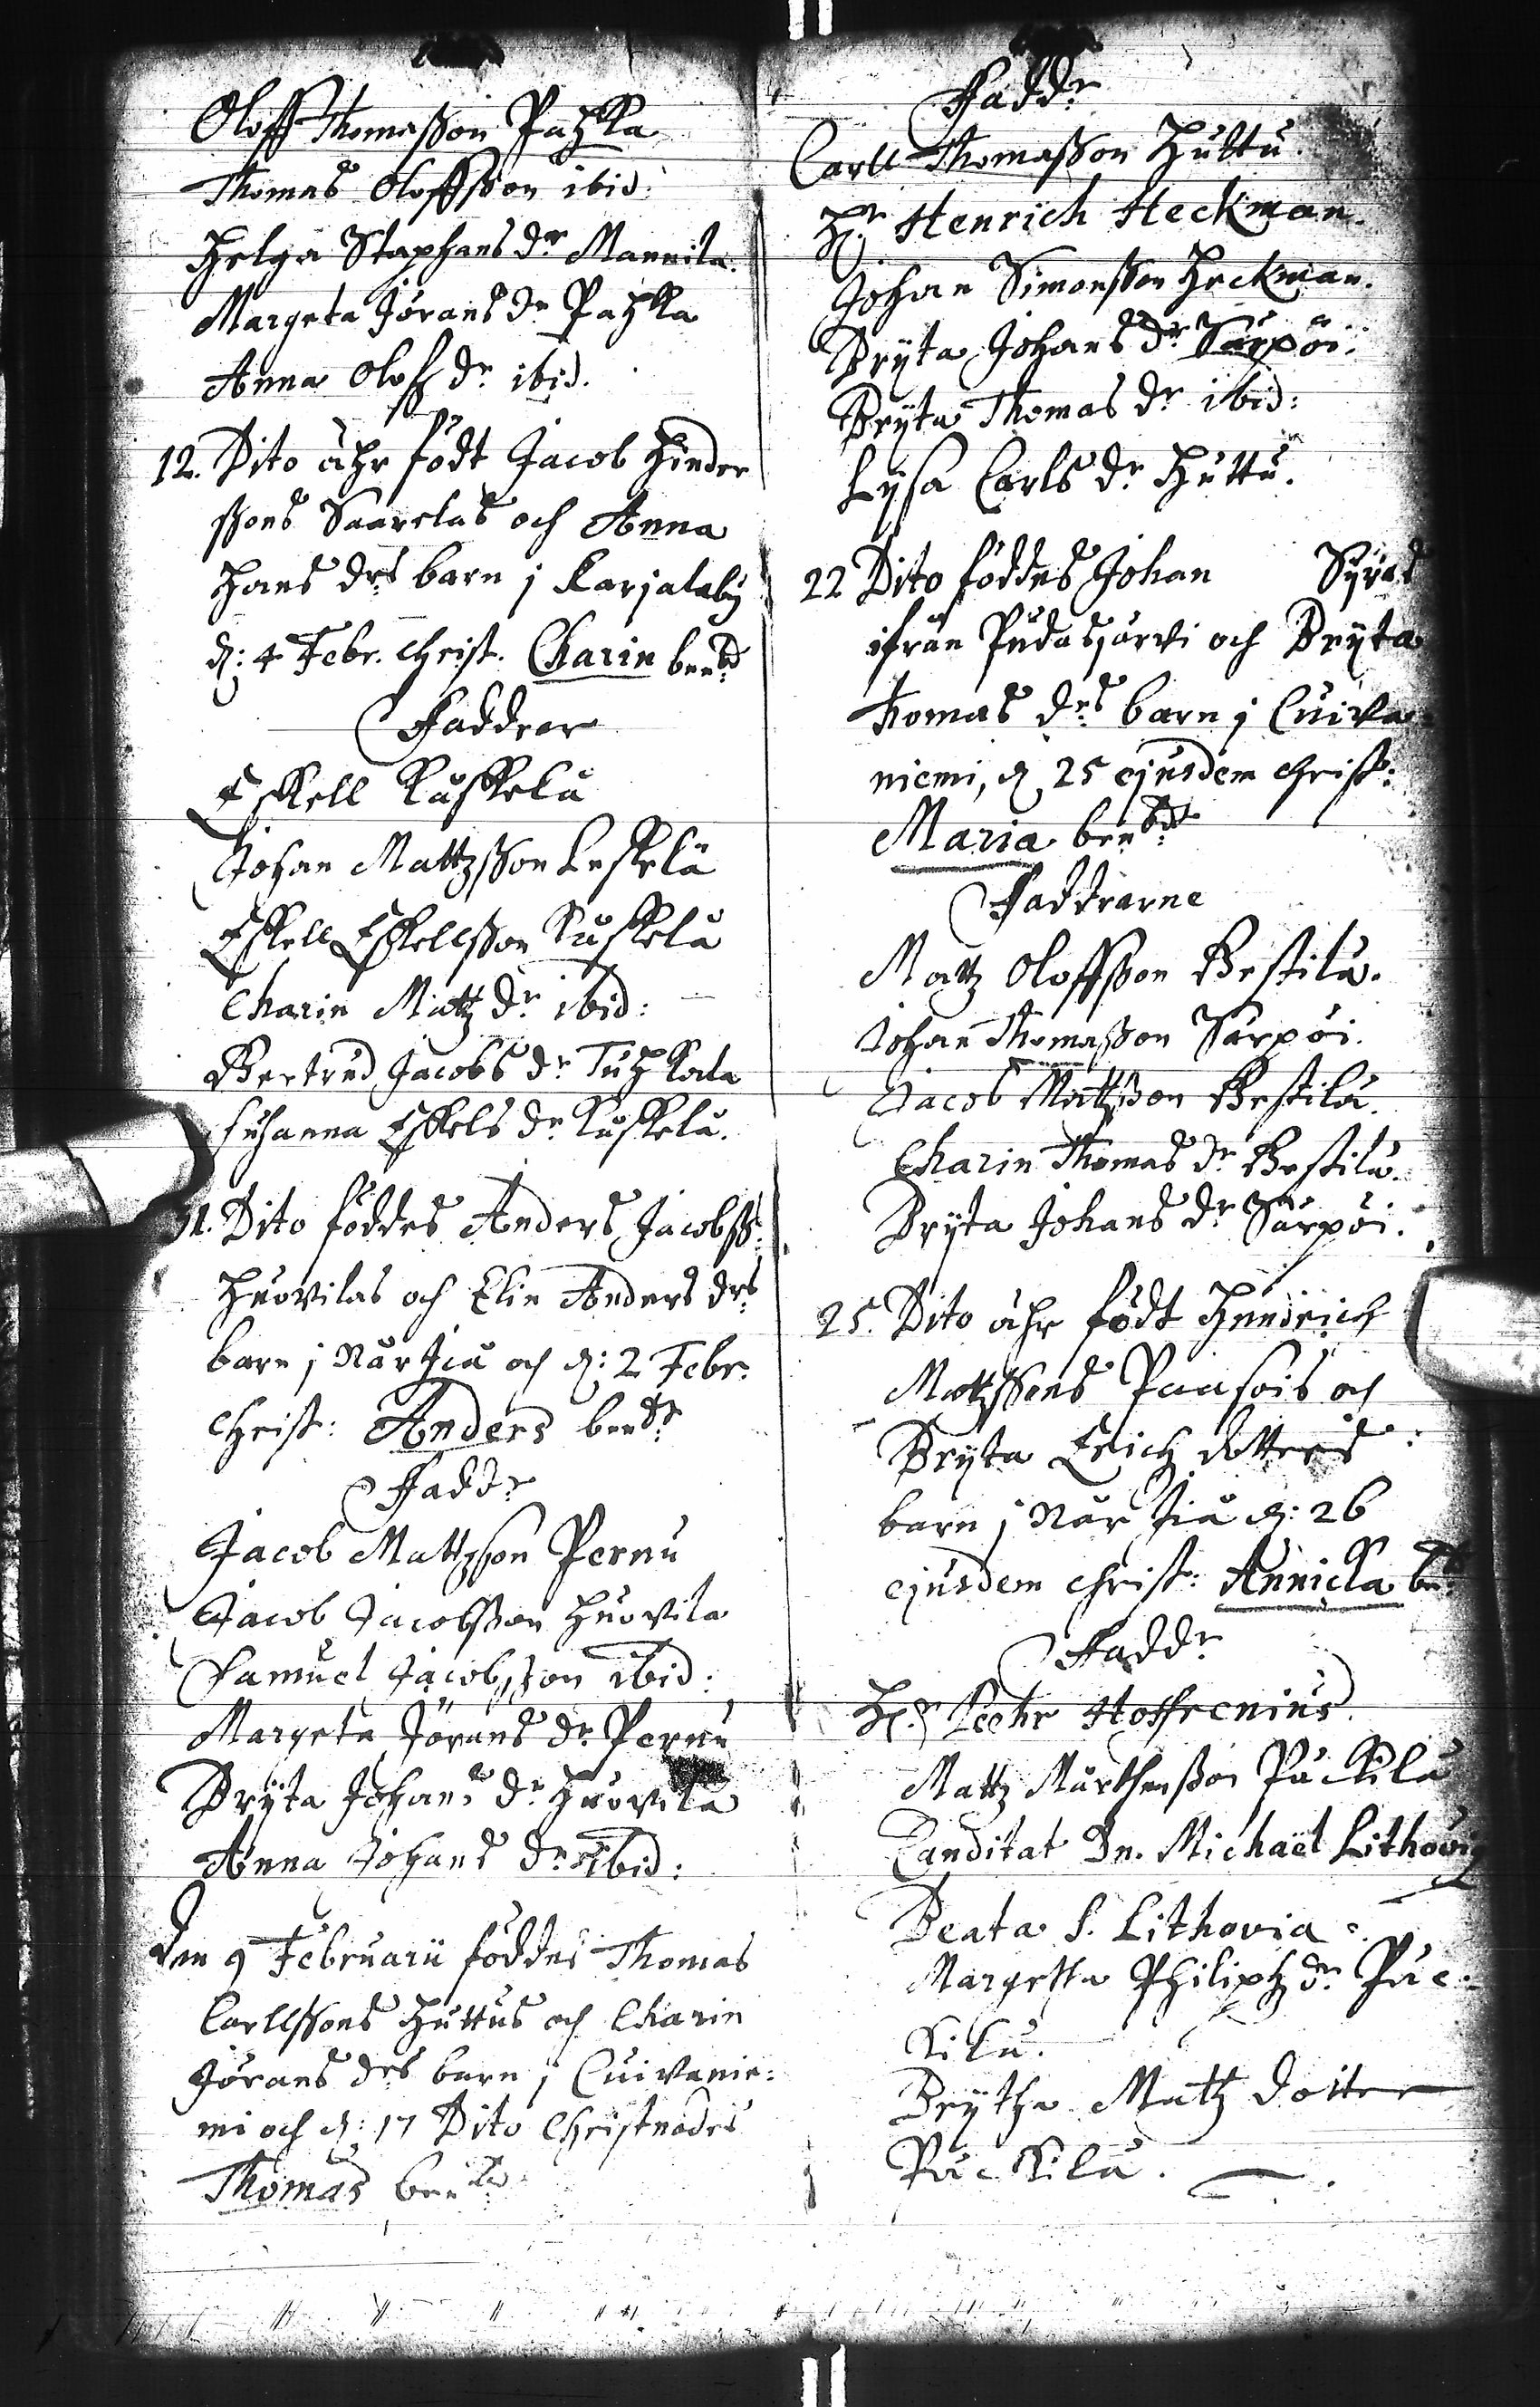 Oloff Thomasson Pahkla
Thomas Oloffsson ibid:
Helga Staphans dr Mannila.
Margeta Jörans dr Pahkla
Anna Olofz dr ibid.
12. Dito åhr födt Jacob Hinder
ssons Saarelas och Anna
Hans drs barn j Karjalaby
d: 4 Febr. Christ. Charin bend
Faddrar
Eskell Kuskela
Johan Mattzsson Leskelä
Eskell Eskellsson Kuskela
Charin Matz dr ibid:
Gertrud Jacobs dr Tuhkala
Susanna Eskels dr Kuskela.
Dito föddes Anders Jacobss:
Huovilas och Elin Anders drs
barn j Närjiä och d: 2 Febr.
Christ: Anders bendt
Fadd:r
Jacob Mattzson Pernu
Jacob Jacobsson Huovila
Samuel Jacobsson ibid:
Margeta Jörans dr Pernu
Bryta Johans dr Huovila
Anna Johans dr ibid:
Den 9 Februarii föddes Thomas
Carllssons Huttus och Charin
Jörans drs barn j Cuivanie:
mi och d: 17 Dito Christnades
Thomas bend
Fadd:r
Carll Thomasson Huttu.
Hr Henrich Heckman.
Johan Simonsson Heckman.
Bryta Johans dr Särpöi.
Bryta Thomas dr ibid:
Lysa Carls dr Huttu.
22 Dito föddes Johan
ifrån Pudasjärvi och Bryta
Thomas drs barn j Cuiva:
niemi, d 25 ejusdem Christ:
Maria bendt
Faddrarne
Matz Oloffsson Bestila.
Johan Thomasson Särpöi.
Jacob Mattzson Bestila.
Charin Thomas dr Bestila.
Bryta Johans dr Särpöi.
25. Dito åhr födt Hendrich
Mattzssons Paasois och
Bryta Erich dotters
barn j Närjiä d: 26
ejusdem Christ: Annicka bendt
Fadd:r
Hr Peehr Hoffrenius.
Mattz Mårthensson Päckilä
Canditat Dn. Michael Lithovi
Beata S. Lithovia
Margetta Philipz dr Päc:
kilä.
Brytha Matz dotter
Päckilä.